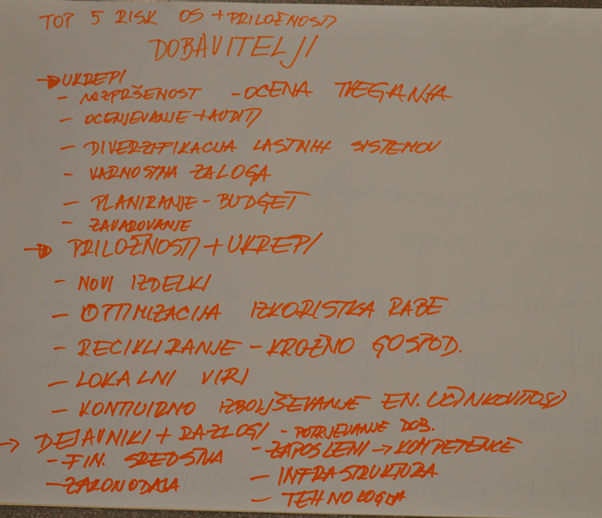 TOP 5 RISK OS + PRILOŽNOSTI
DOBAVITELJI
→ UKREPI
- RAZPRŠENOST - OCENA TVEGANJA
- OCENJEVANJE + AUDITI
- DIVERZIFIKACIJA LASTNIH SISTEMOV
- VARNOSTNA ZALOGA
- PLANIRANJE - BUDGET
- ZAVAROVANJE
→ PRILOŽNOSTI + UKREPI
- NOVI IZDELKI
- OPTIMIZACIJA IZKORISTKA RABE
- RECIKLIRANJE - KROŽNO GOSPOD.
- LOKALNI VIRI
- KONTIUIRNO IZBOLJŠEVANJE EN. UČINKOVITOSTI
→ DEJAVNIKI + RAZLOGI - POTRJEVANJE DOB.
- FIN. SREDSTVA - ZAPOSLENI → KOMPETENCE
- ZAKONODAJA - INFRASTRUKTURA
- TEHNOLOGIJA